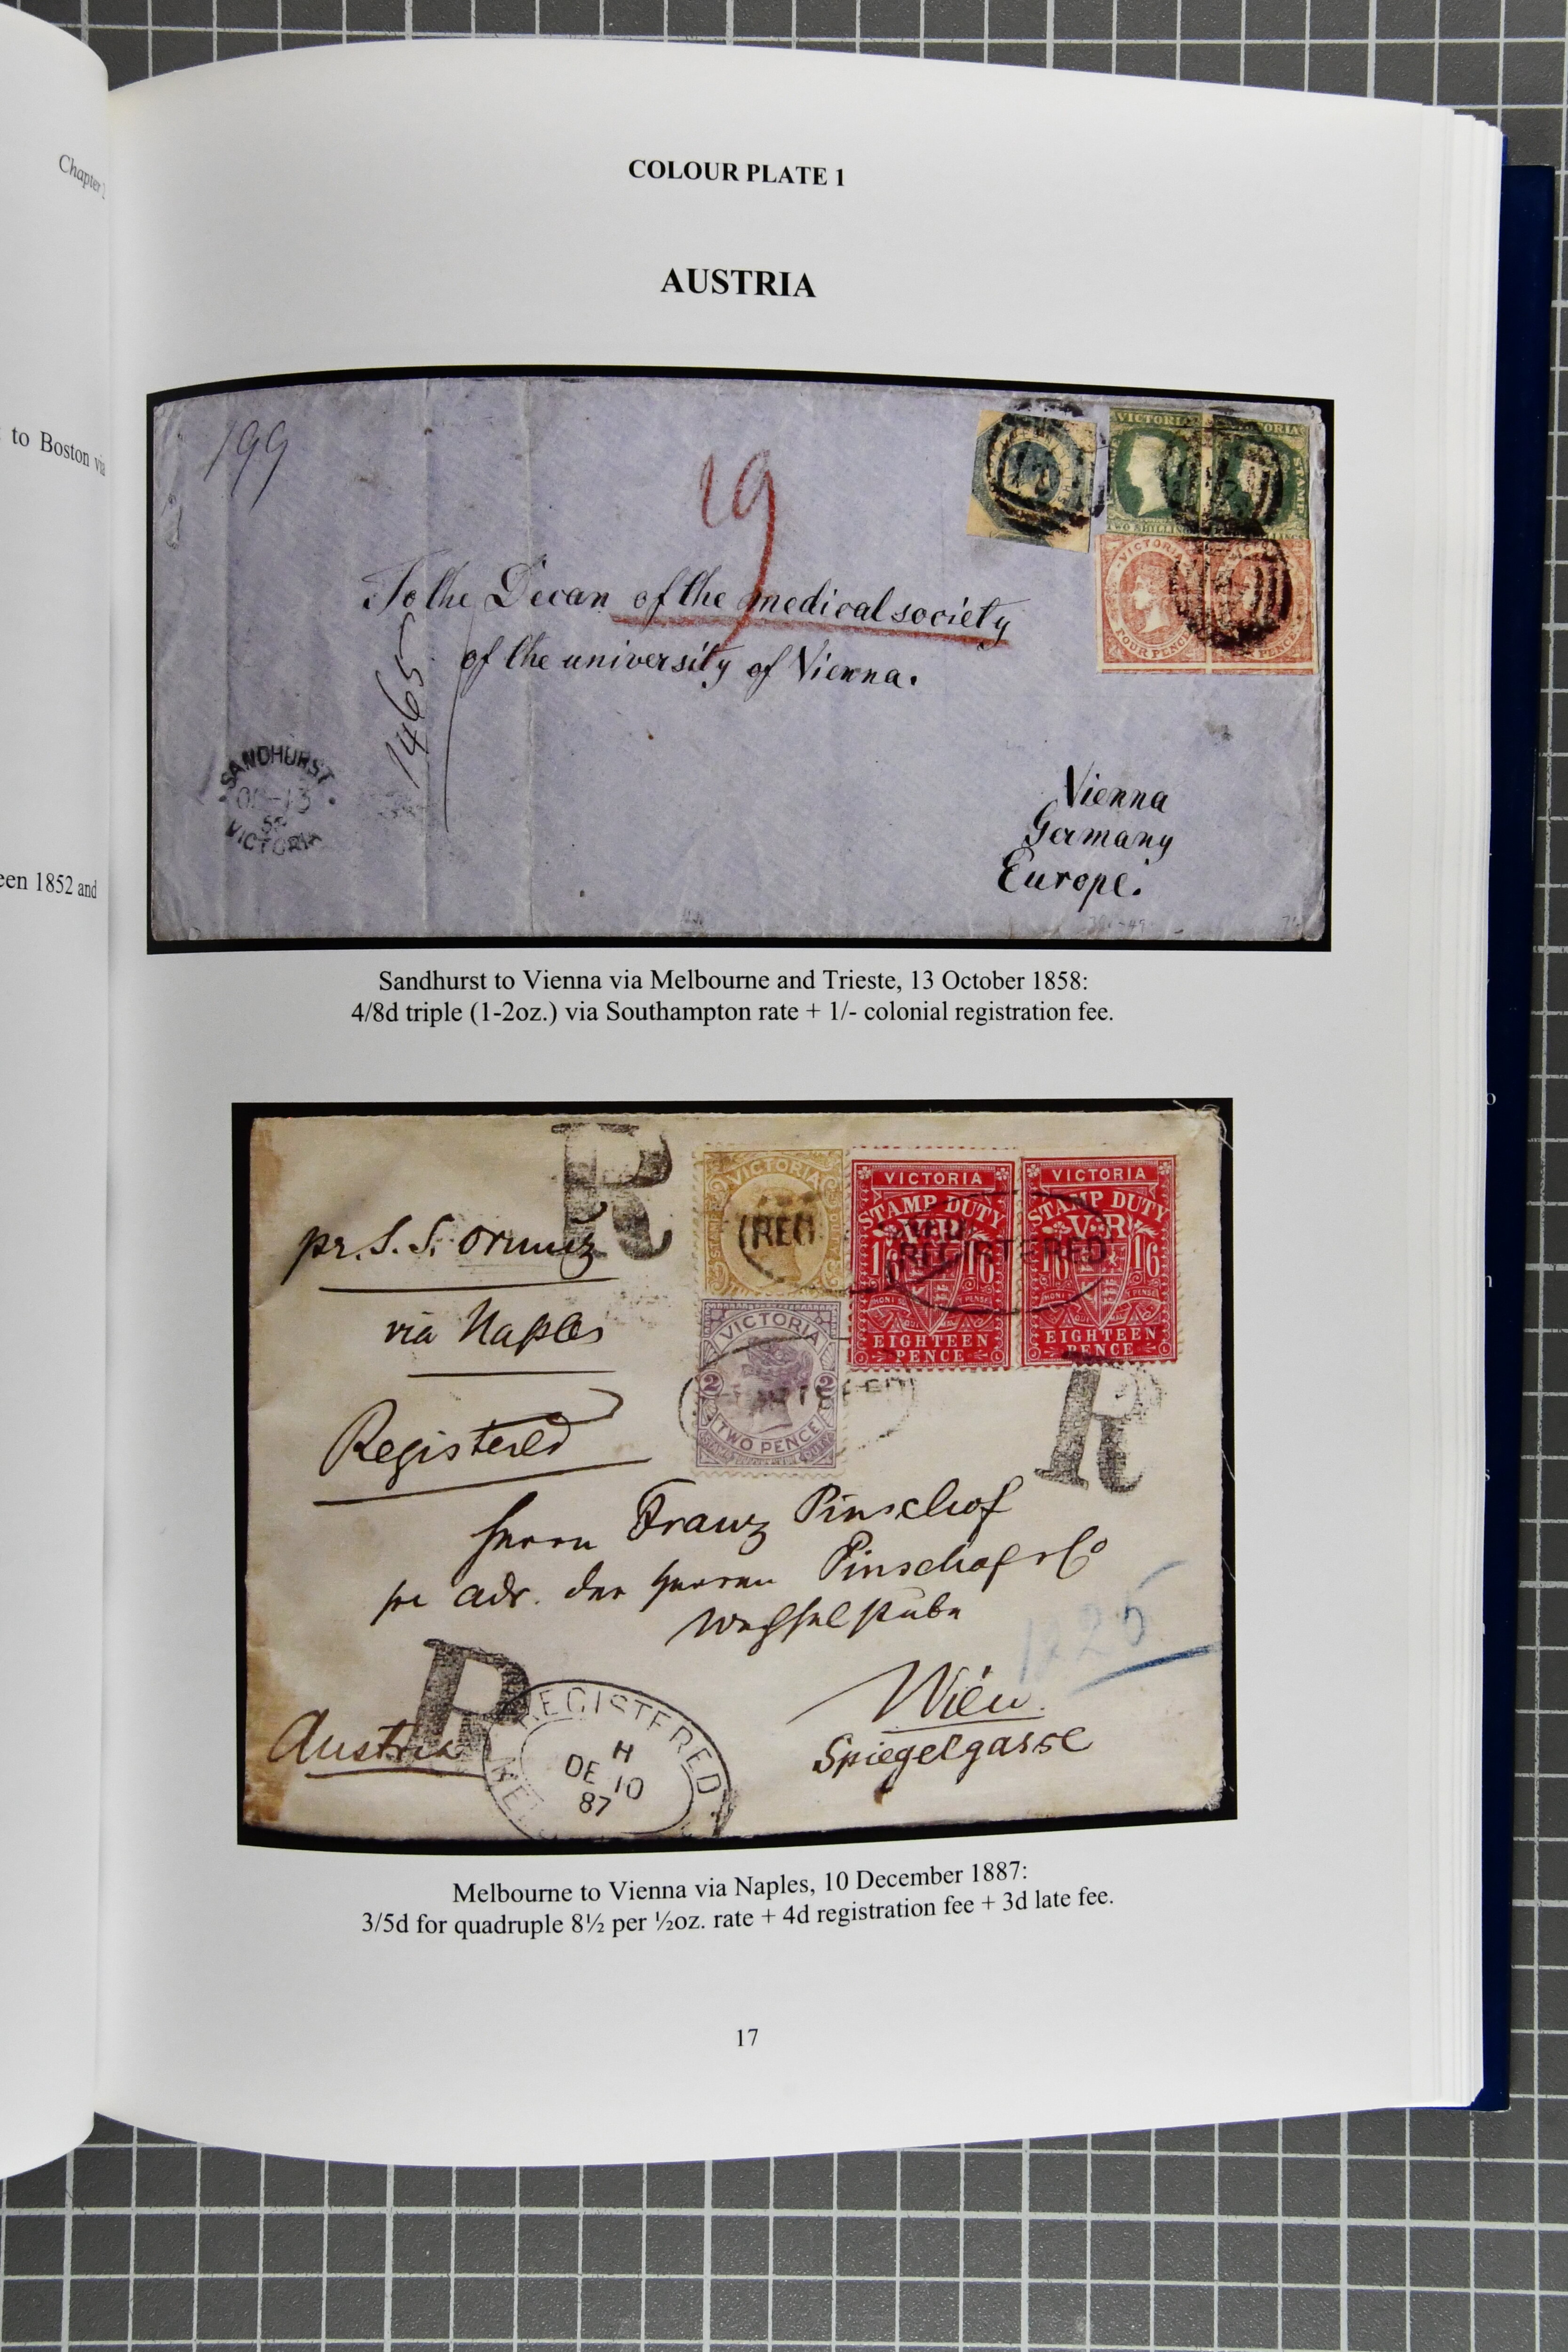 Chapter
to Boston via
een 1852 and
COLOUR PLATE 1
AUSTRIA
199
19
VICTORIA
TWO SHILLINGS
VICTORIA
FOUR PENCE
To the Decan of the medical society
of the university of Vienna.
1465
SANDHURST
VICTORIA
Vienna
Germany
Europe.
Sandhurst to Vienna via Melbourne and Trieste, 13 October 1858:
4/8d triple (1-2oz.) via Southampton rate + 1/- colonial registration fee.
R
pr. S. S. Ormuz
via Naples
Registered
VICTORIA
VICTORIA
2 2
TWO PENCE
VICTORIA
STAMP DUTY
V R
1/6 1/6
EIGHTEEN
PENCE
VICTORIA
STAMP DUTY
V R
1/6 1/6
EIGHTEEN
PENCE
REGISTERED
R
Herrn Franz Pinschof
pr adr. der Herren Pinschof & Co
Wechselstube
1225
Wien
Spiegelgasse
R
Austria
REGISTERED
H
DE 10
87
Melbourne to Vienna via Naples, 10 December 1887:
3/5d for quadruple 8½ per ½oz. rate + 4d registration fee + 3d late fee.
17